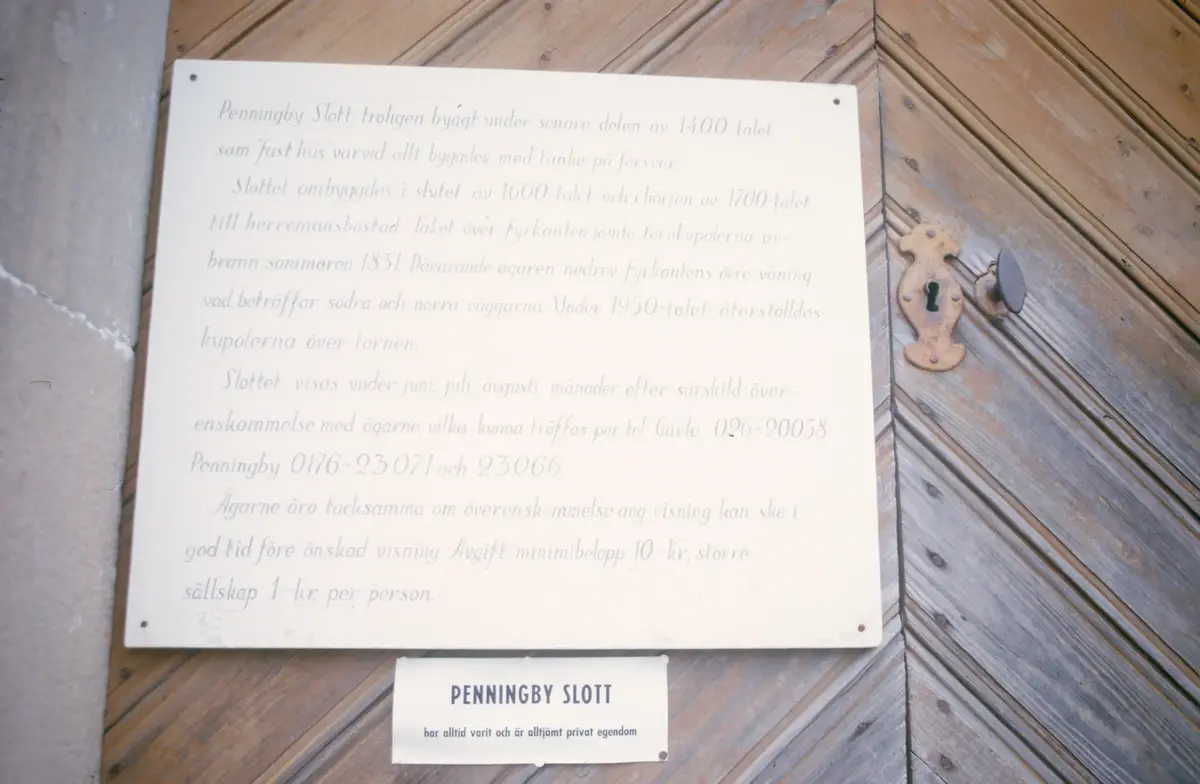 Penningby Slott troligen byggt under senare delen av 1400-talet
som fast hus varvid allt byggdes med tanke på försvar
Slottet ombyggdes i slutet av 1600 talet och i början av 1700-talet
till herremansbostad Taket över fyrkanten jämte tornkupolerna av-
brann sommaren 1831 Dåvarande ägaren nedrev fyrkantens övre våning
vad beträffar södra och norra väggarna. Under 1950-talet återställdes
kupolerna över tornen.
Slottet visas under juni, juli augusti månader efter särskild över-
enskommelse med ägarne vilka kunna träffas per tel Gävle 026-20058
Penningby 0176-23071 och 23066
Ägarne äro tacksamma om överenskommelse ang visning kan ske i
god tid före önskad visning Avgift minimibelopp 10 kr, större
sällskap 1 kr. per person.
PENNINGBY SLOTT
har alltid varit och är alltjämt privat egendom